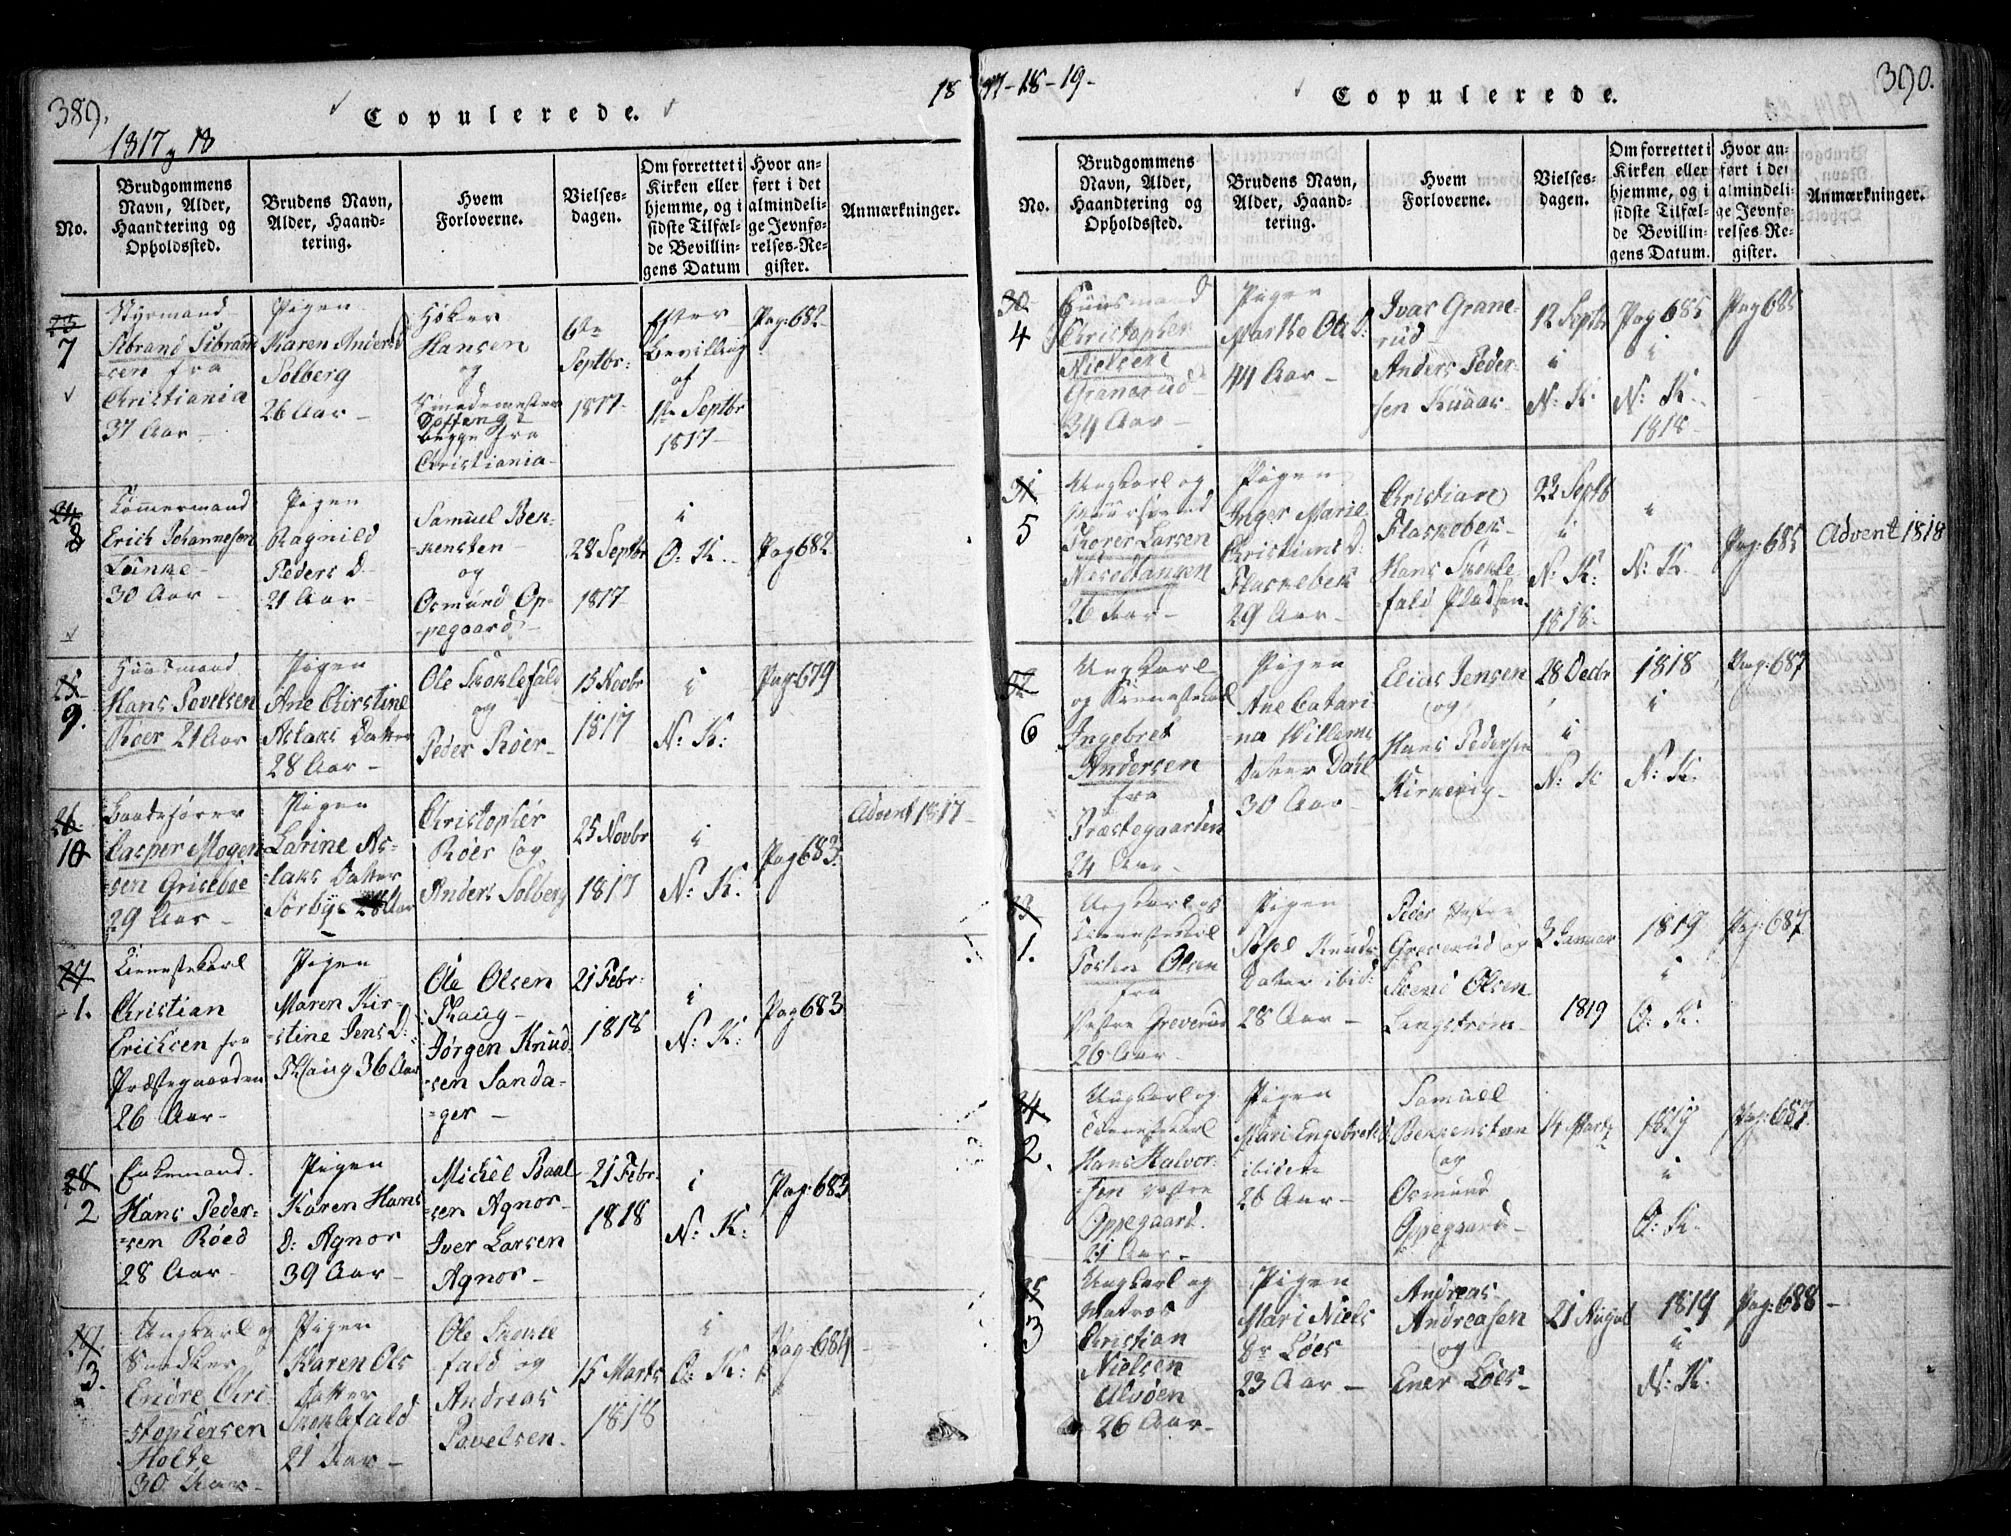 389.
Copulerede.
1817 & 18
18
No.
Brudgommens
Navn, Alder,
Haandtering og
Opholdssted.
Brudens Navn,
Alder, Haand-
tering.
Hvem
Forloverne.
Vielses-
dagen.
Om forrettet i
Kirken eller
hjemme, og i
sidste Tilfæl-
de Bevillin-
gens Datum
Hvor an-
ført i det
almindeli-
ge Jevnfø-
relses-Re-
gister.
Anmærkninger.
23
7
Styrmand
Sibrand Sibrand
-sen fra
Christiania
37 Aar
Pigen
Karen Anders D
Solberg
26 Aar
Høker
Hansen
og
Smedemester
begge fra
Christiania
6te
Septbr:
1817
Efter
Bevilling
af
1ste Septbr
1817
Pag: 682
24
8
Tømmermand
Erich Johannesen
30 Aar
Pigen
Ragnild
Peders D
21 Aar
Samuel Bek-
kensten
og
Osmund Op-
pegaard
28 Septbr
1817
i
O: K.
Pag 682
25
9.
Huusmand
Hans Povelsen
Røer 21 Aar
Pigen
Ane Chirstine
Aslaks Datter
28 Aar
Ole Skoklefald
og
Peder Røer
15 Novbr
1817
i
N: K:
Pag: 679
26
10
Baadsfører
Casper Mogen
-sen Grisebøe
29 Aar
Pigen
Larine As-
laks Datter
Sørbye 28 Aar
Christopher
Røer og
Anders Solberg
25 Novbr
1817
i
N: K:
Pag 683
Advent 1817
27
1.
Tienestekarl
Christian
Erichsen fra
Præstegaarden
26 Aar
Pigen
Maren Kir-
stine Jens D:
Skoug 36 Aar
Ole Olsen
Skoug
Jørgen Knud-
sen Sanda-
ger
21 Febr.
1818
i
N: K:
Pag 683
28
2
Enkemand
Hans Peder-
sen Røed
28 Aar
Pigen
Karen Hans
D: Agnor
39 Aar
Michel Paal
sen Agnor
Iver Larsen
Agnor
21 Febr.
1818
i
N: K:
Pag: 683
29
3.
Ungkarl og
Endre Chri-
stophersen
Holte
30 Aar
Pigen
Karen Ols
Datter
Skoklefald
21 Aar
Ole Skokle
fald og
Andreas
Povelsen
15 Marts
1818
i
O: K:
Pag: 684
17-18-19-
Copulerede.
390.
No.
Brudgommens
Navn, Alder,
Haandtering og
Opholdssted.
Brudens Navn,
Alder, Haand-
tering.
Hvem
Forloverne.
Vielses-
dagen.
Om forrettet i
Kirken eller
hjemme, og i
sidste Tilfæl-
de Bevillin-
gens Datum.
Hvor an-
ført i det
almindeli-
ge Jevnfø-
relses-Re-
gister.
Anmærkninger.
30
4
Huusmand
Christopher
Nielsen
Granerud
34 Aar
Pigen
Marthe Ols D:
44 Aar
Ivar Grane-
rud
Anders Peder-
sen
12 Septbr
i
N: K:
Pag 685
i
N: K.
1818
Pag 685
31
5
Ungkarl og
Thorer Larsen
Nesodtangen
26 Aar
Pigen
Inger Marie
Christians D:
Flaskebek
29 Aar
Christian
Flaskebek
Hans Skokle
fald Pladsen
22 Septb
i
N: K:
1818
N: K.
Pag: 685
Advent 1818
32
6
Ungkarl
og Tienestekarl
Ingebret
Andersen
fra
Præstegaarden
24 Aar
Pigen
Ane Catari-
na Willems
Datter Dahl
30 Aar
Elias Jensen
og
Hans Pedersen
Kirkevig
28 Decbr
i
N: K
1818
i
N: K.
Pag: 687
33
1.
Ungkarl og
Tienestekarl
Tosten Olsen
fra
Vestre Greverud
26 Aar
Pigen
Knuds
Datter ibid:
28 Aar
Peder Vestre
Greverud og
Svend Olsen
3 Januar
1819
1819
i
O: K.
Pag: 687
34
2.
Ungkarl og
Tienestekarl
Hans Halvor-
sen Vestre
Oppegaard
21 Aar
Pigen
Mari Engebrets D
ibidem
26 Aar
Samuel
Bekkensteen
og
Osmund
Oppegaard
14 Marts
1819
i
O: K.
Pag: 687
35
3
Ungkarl og
Matros
Christian
Nielsen
Ulvøen
26 Aar
Pigen
Mari Niels
Dr Løes
23 Aar
Andreas
Andreasen
og
Ener Løes
21 August
1819
i
N: K.
Pag: 688